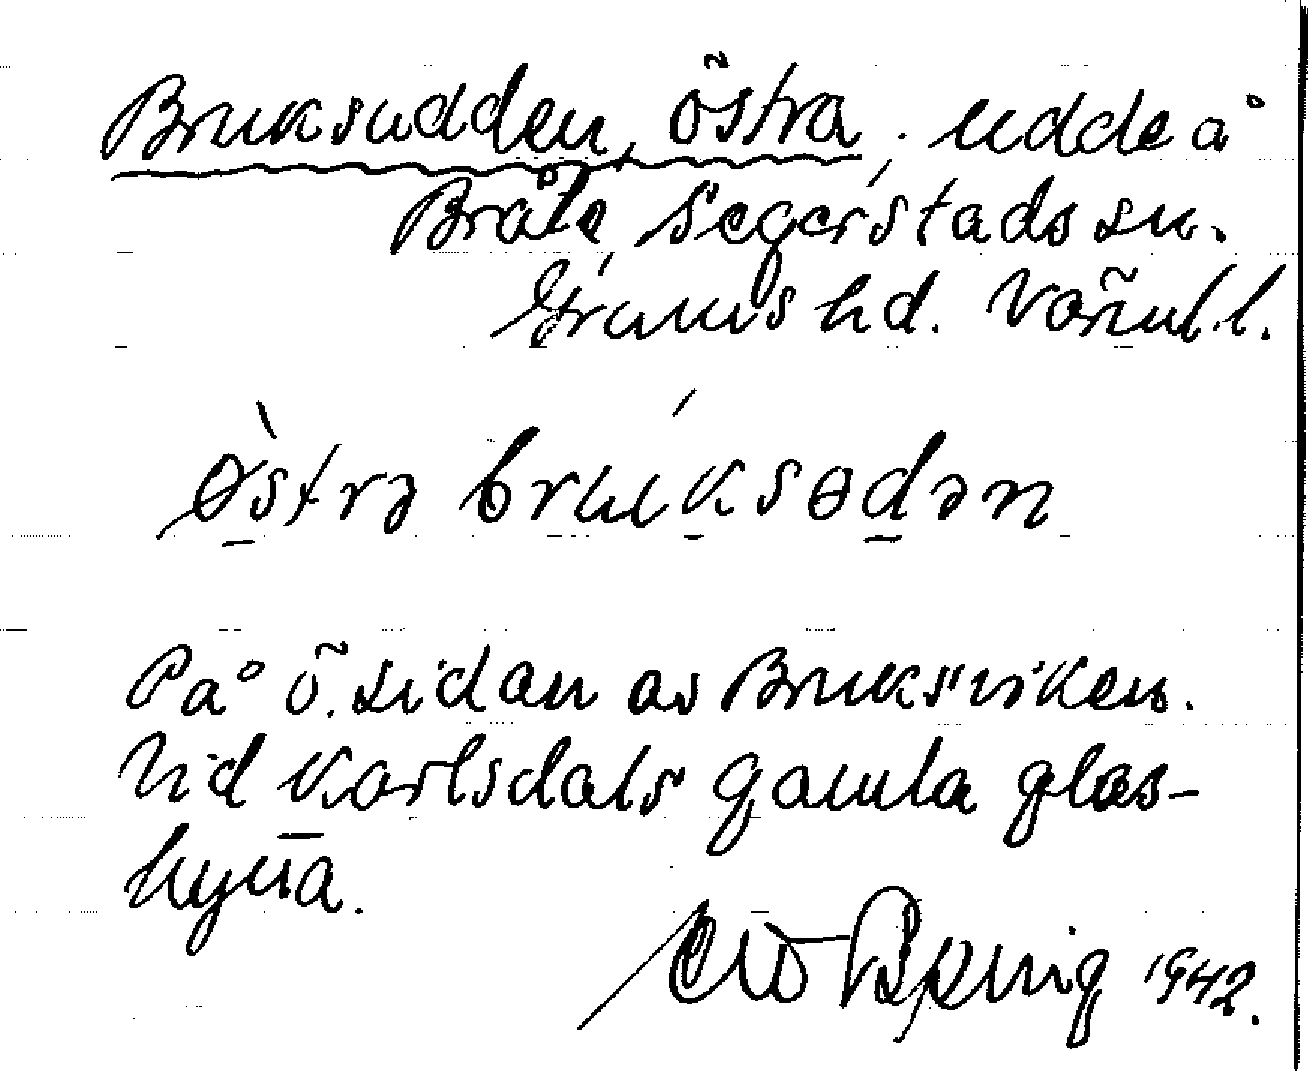 Bruksudden, östra, udde å
Bråte, Segerstads sn.
Grums hd. Värml. l.
østrə bruksɵdən
På ö. sidan av Bruksviken.
Vid Karlsdals gamla glas-
hytta.
1942.